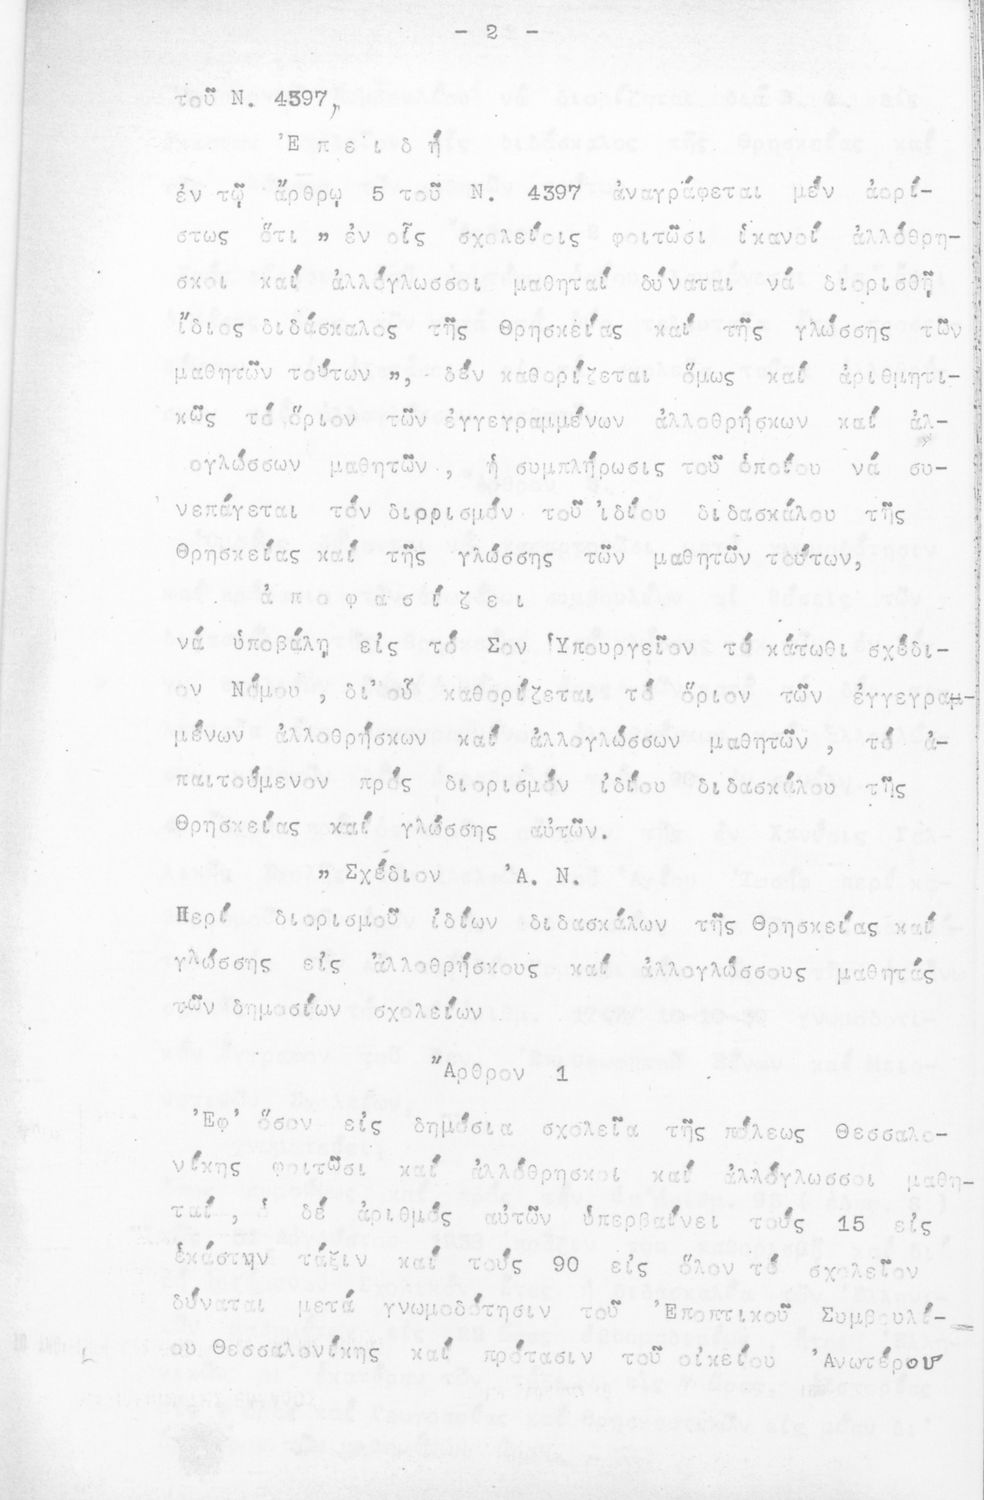 - 2 -
τοῦ Ν. 4397,
Ἐπειδή
ἐν τῷ ἄρθρῳ 5 τοῦ Ν. 4397 ἀναγράφεται μέν ἀορί-
στως ὅτι " ἐν οἷς σχολείοις φοιτῶσι ἱκανοί ἀλλόθρη-
σκοι καί ἀλλόγλωσσοι μαθηταί δύναται νά διορισθῇ
ἴδιος διδάσκαλος τῆς Θρησκείας καί τῆς γλώσσης τῶν
μαθητῶν τούτων ", δέν καθορίζεται ὅμως καί ἀριθμητι-
κῶς τό ὅριον τῶν ἐγγεγραμμένων ἀλλοθρήσκων καί ἀλ-
ογλώσσων μαθητῶν , ἡ συμπλήρωσις τοῦ ὁποίου νά συ-
νεπάγεται τόν διορρισμόν τοῦ ἰδίου διδασκάλου τῆς
Θρησκείας καί τῆς γλώσσης τῶν μαθητῶν τούτων,
ἀποφασίζει
νά ὑποβάλῃ εἰς τό Σον Ὑπουργεῖον τό κάτωθι σχέδι-
ον Νόμου , δι'οὗ καθορίζεται τό ὅριον τῶν ἐγγεγραμ-
μένων ἀλλοθρήσκων καί ἀλλογλώσσων μαθητῶν , τό ἀ-
παιτούμενον πρός διορισμόν ἰδίου διδασκάλου τῆς
Θρησκείας καί γλώσσης αὐτῶν.
" Σχέδιον Ἀ. Ν.
Περί διορισμοῦ ἰδίων διδασκάλων τῆς Θρησκείας καί
γλώσσης εἰς ἀλλοθρήσκους καί ἀλλογλώσσους μαθητάς
τῶν δημοσίων σχολείων
Ἄρθρον 1
Ἐφ' ὅσον εἰς δημόσια σχολεῖα τῆς πόλεως Θεσσαλο-
νίκης φοιτῶσι καί ἀλλόθρησκοι καί ἀλλόγλωσσοι μαθη-
ταί , ὁ δέ ἀριθμός αὐτῶν ὑπερβαίνει τούς 15 εἰς
ἑκάστην τάξιν καί τούς 90 εἰς ὅλον τό σχολεῖον
δύναται μετά γνωμοδότησιν τοῦ Ἐποπτικοῦ Συμβουλί-
ου Θεσσαλονίκης καί πρότασιν τοῦ οἰκείου Ἀνωτέρου